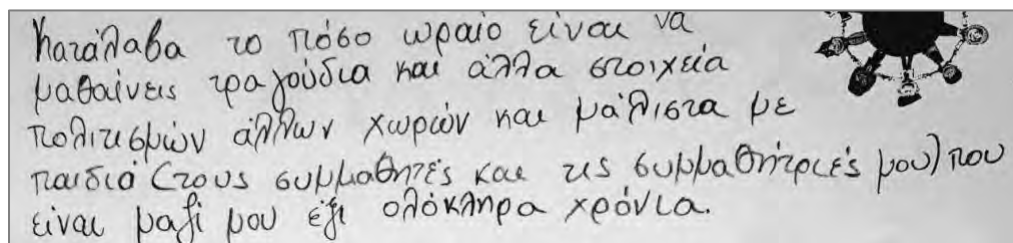 Κατάλαβα το πόσο ωραίο είναι να
μαθαίνεις τραγούδια και άλλα στοιχεία
πολιτισμών άλλων χωρών και μάλιστα με
παιδιά (τους συμμαθητές και τις συμμαθήτριές μου) που
είναι μαζί μου έξι ολόκληρα χρόνια.